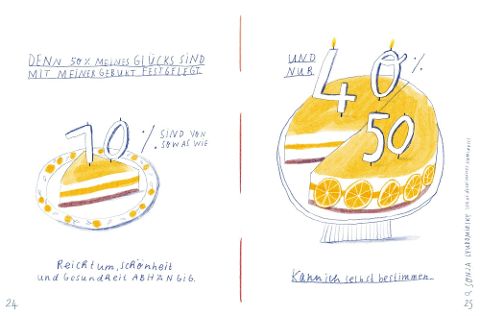 DENN 50% MEINES GLÜCKS SIND
MIT MEINER GEBURT FESTGELEGT
10% SIND VON
SOWAS WIE
Reichtum, schönheit
und Gesundheit ABHÄNGIG.
24
UND
NUR
40%
50
Kann ich selbst bestimmen.
25
SONJA LYUBOMIRSKY